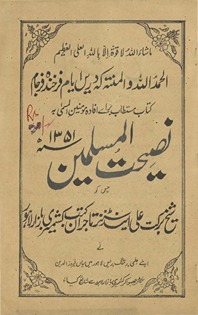 ماشاء اللہ لا قوۃ الا باللہ العلی العظیم
الحمد للہ والمنتہ کہ دریں ایام فرخندہ فرجام
کتاب مستطاب برائے افادہ مومنین المسمٰی بہ
نصیحت المسلمین
سنہ ۱۳۵۱
جس کو
شیخ برکت علی اینڈ سنز تاجران کتب کشمیری بازار لاہور
نے